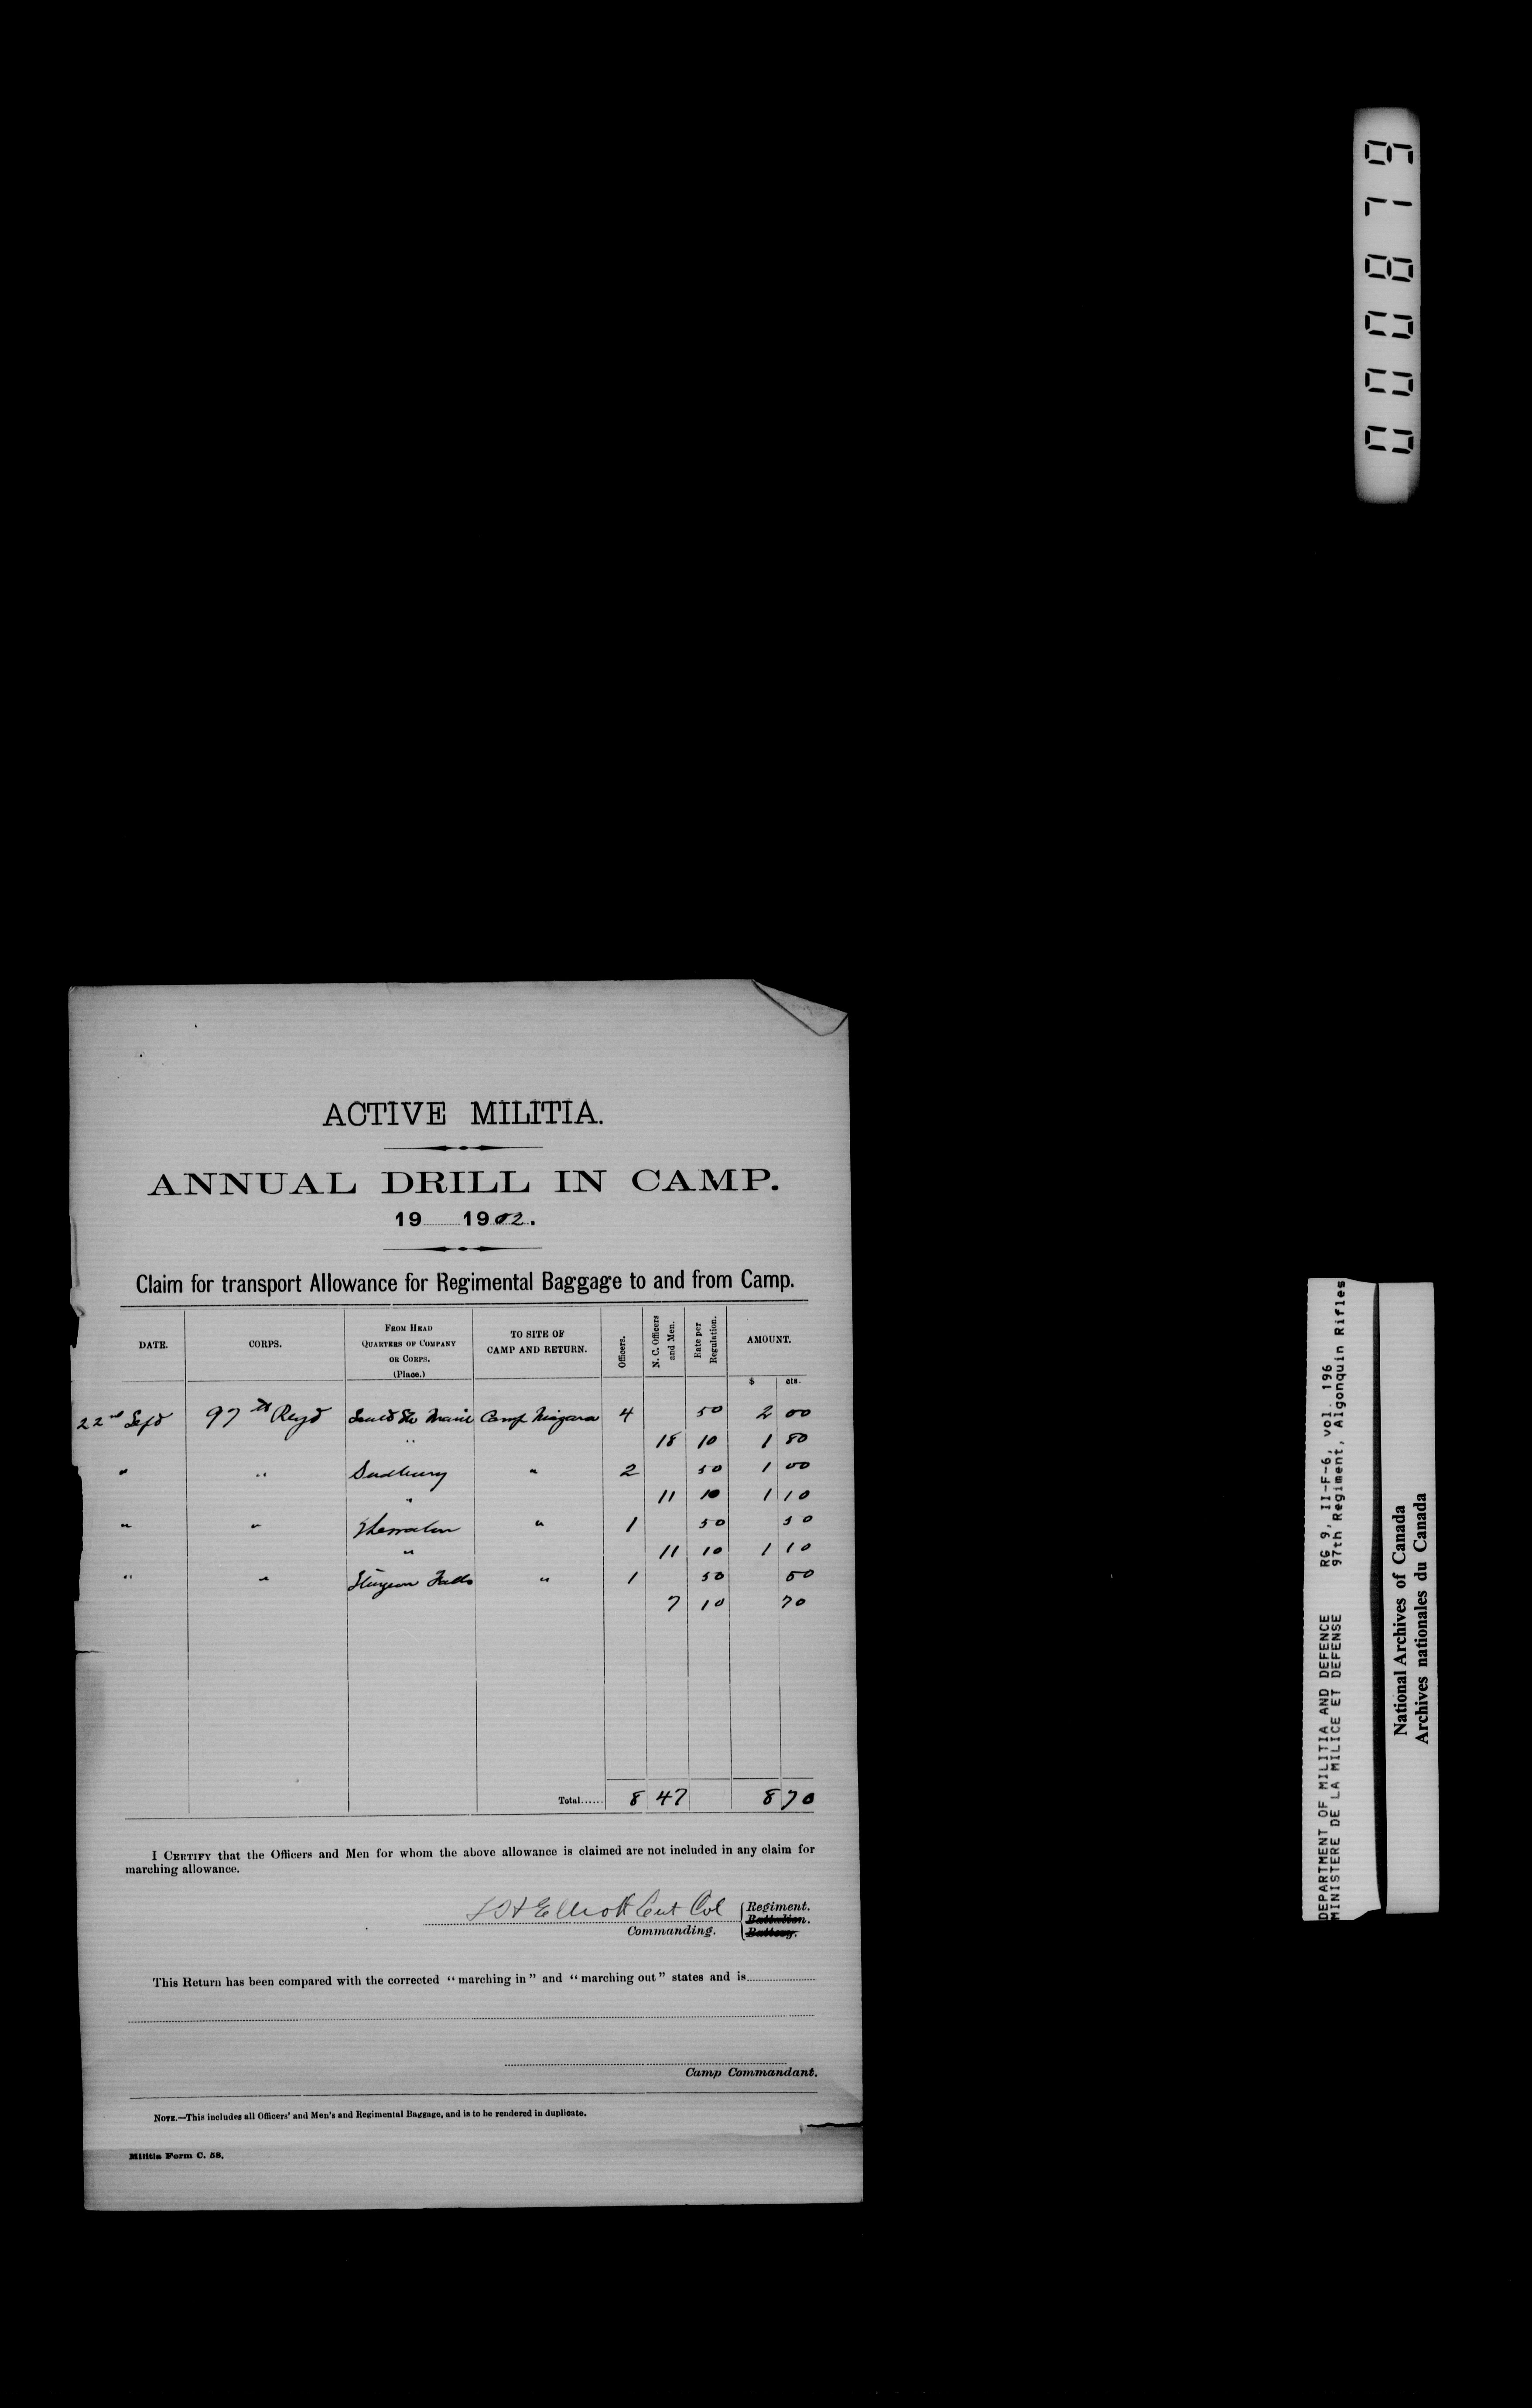 000879
ACTIVE MILITIA.
ANNUAL DRILL IN CAMP.
19......1902.
Claim for transport Allowance for Regimental Baggage to and from Camp.
DATE. CORPS. FROM HEAD QUARTERS OF COMPANY OR CORPS. (Place.) TO SITE OF CAMP AND RETURN. Officers. N. C. Officers and Men. Rate per Regulation. AMOUNT.
$ cts.
22nd Sept 97th Regt Sault Ste Marie Camp Niagara 4 50 2 00
" 18 10 1 80
" " Sudbury " 2 50 1 00
" 11 10 1 10
" " Thessalon " 1 50 50
" 11 10 1 10
" " Sturgeon Falls " 1 50 50
7 10 70
Total...... 8 47 8 70
I CERTIFY that the Officers and Men for whom the above allowance is claimed are not included in any claim for
marching allowance.
Elliott Lieut Col Regiment.
Battalion.
Commanding. Battery.
This Return has been compared with the corrected "marching in" and "marching out" states and is
Camp Commandant.
NOTE.—This includes all Officers' and Men's and Regimental Baggage, and is to be rendered in duplicate.
Militia Form C. 58.
DEPARTMENT OF MILITIA AND DEFENCE RG 9, II-F-6, vol. 196
MINISTERE DE LA MILICE ET DEFENSE 97th Regiment, Algonquin Rifles
National Archives of Canada
Archives nationales du Canada